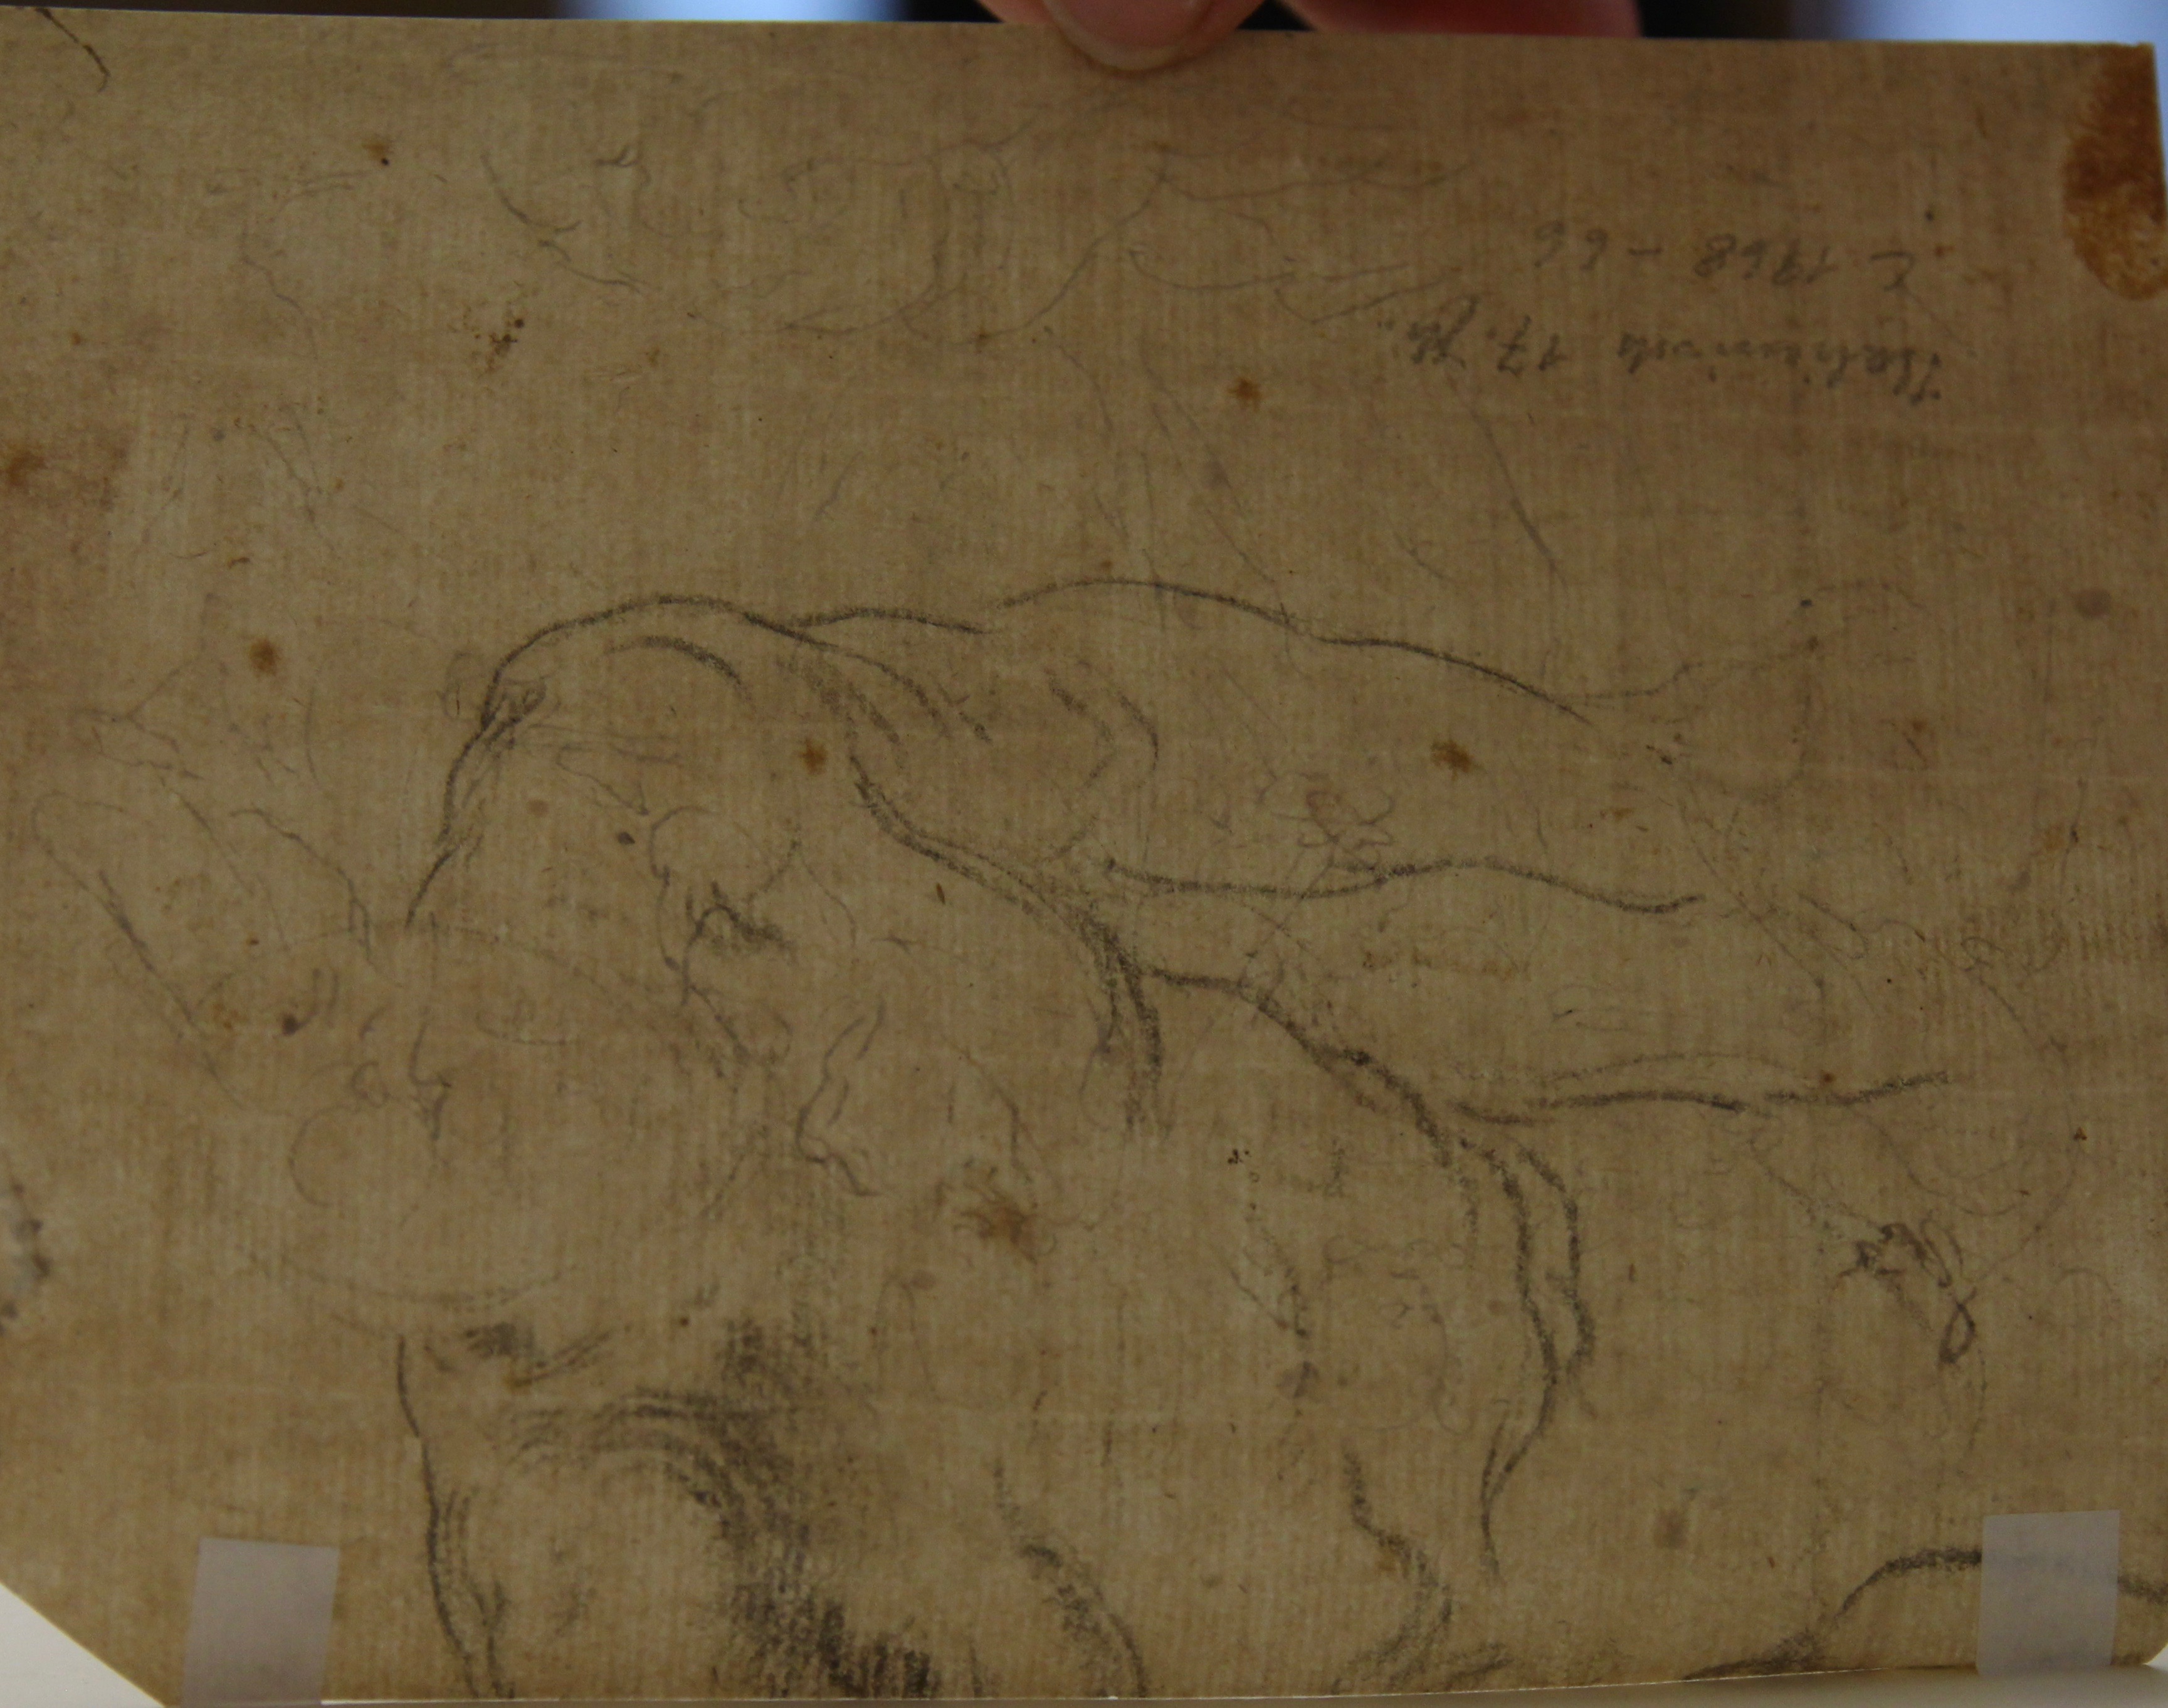 Italienisch 17. Jh.
C 1968 - 66